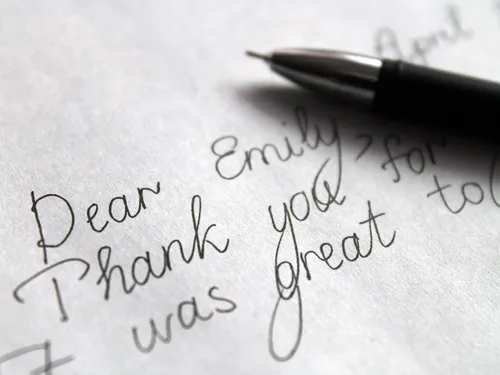 April
Dear Emily,
Thank you for
I was great to